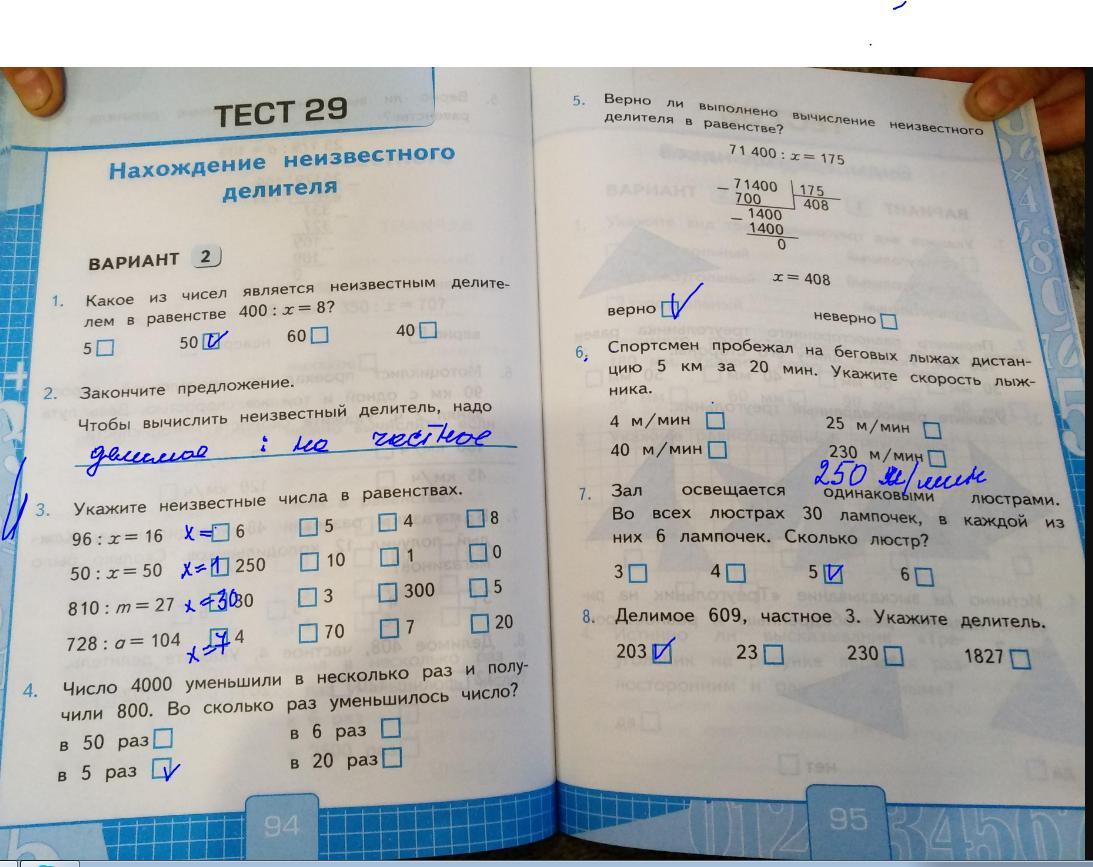 ТЕСТ 29
Нахождение неизвестного
делителя
ВАРИАНТ 2
1. Какое из чисел является неизвестным делите-
лем в равенстве 400 : x = 8?
5 50 60 40
2. Закончите предложение.
Чтобы вычислить неизвестный делитель, надо
делимое : на частное
3. Укажите неизвестные числа в равенствах.
96 : x = 16 x = 6 5 4 8
50 : x = 50 x = 1 250 10 1 0
810 : m = 27 x = 30 30 3 300 5
728 : a = 104 x = 7 4 70 7 20
4. Число 4000 уменьшили в несколько раз и полу-
чили 800. Во сколько раз уменьшилось число?
в 50 раз в 6 раз
в 5 раз в 20 раз
94
5. Верно ли выполнено вычисление неизвестного
делителя в равенстве?
71 400 : x = 175
– 71400 175
700 408
– 1400
1400
0
x = 408
верно неверно
6. Спортсмен пробежал на беговых лыжах дистан-
цию 5 км за 20 мин. Укажите скорость лыж-
ника.
4 м/мин 25 м/мин
40 м/мин 230 м/мин
250 м/мин
7. Зал освещается одинаковыми люстрами.
Во всех люстрах 30 лампочек, в каждой из
них 6 лампочек. Сколько люстр?
3 4 5 6
8. Делимое 609, частное 3. Укажите делитель.
203 23 230 1827
95